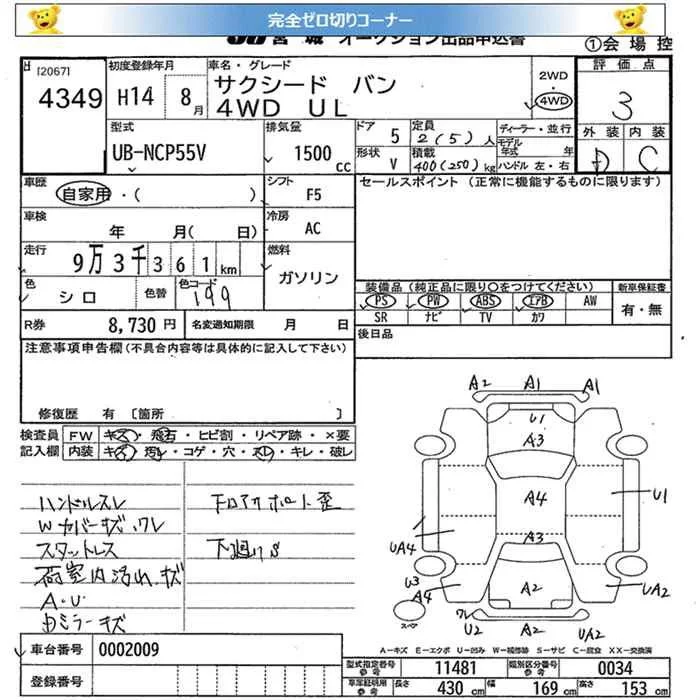 完全ゼロ切りコーナー
JU宮城 オークション出品申込書
①会場控
[2067]
4349
初度登録年月
H14 8月
車名・グレード
サクシード バン
4WD UL
2WD
4WD
評価点
3
外装 内装
D C
型式
UB-NCP55V
排気量
1500 CC
ドア 5
定員 2(5)人
形状 V
積載 400(250)kg
ディーラー・並行
モデル年式 年
ハンドル 左・右
車歴
自家用・( )
シフト
F5
セールスポイント (正常に機能するものに限ります)
車検
年 月(日)
冷房
AC
走行
9万3千361km
燃料
ガソリン
色
シロ
色替
色コード
199
装備品 (純正品に限り○をつけてください)
新車保証書
PS PW ABS エアB AW
SR ナビ TV カワ
有・無
R券 8,730円
名変通知期限 月 日
後日品
注意事項申告欄(不具合内容等は具体的に記入して下さい)
修復歴 有 [箇所 ]
検査員
記入欄
FW キズ・飛石・ヒビ割・リペア跡・×要
内装 キズ・汚レ・コゲ・穴・スレ・キレ・破レ
ハンドルスレ
Wカバーキズ、ワレ
スタットレス
荷室内汚れ、キズ
A・U
Dミラーキズ
下廻りS
A2 A1 A1
U1
A3
A4
U1
UA4
A3
U3
A4
A2
UA2
ワレ
U2 A2 UA2
スペア
A-キズ E-エクボ U-凹み W-補修跡 S-サビ C-腐食 XX-交換済
車台番号 0002009
登録番号
型式指定番号 参考 11481
類別区分番号 参考 0034
車庫証明用 参考 長さ 430 cm 幅 169 cm 高さ 153 cm